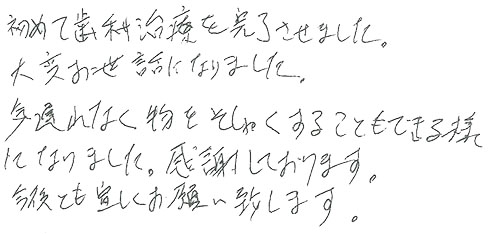 初めて歯科治療を完了させました。
大変お世話になりました。
今遅れなく物をそしゃくすることもできる様
になりました。感謝しております。
今後とも宜しくお願い致します。